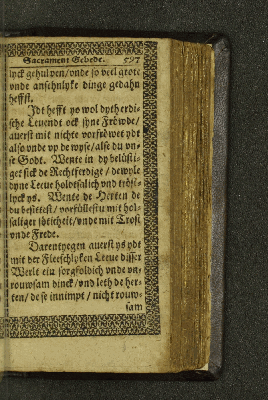 Sacrament Gebede. 597
lyck gehulpen/unde so veel grote
unde ansehnlyke dinge gedahn
heffst.
Idt hefft yo wol dyt herdi-
sche Levendt ock syne Fröwde/
averst mit nichte vorfröwet ydt
also unde up de wyse/alse du un-
se Godt. Wente in dy belüsti-
get sick de Rechtferdige/dewyle
dyne Leve holdesalich und tröst-
lyck ys. Wente de Herten de
du besittest/vorfüllestu mit hol-
saliger söticheit/unde mit Trost
unde Frede.
Darentyegen averst ys yde
mit der Fleeschlyken Leve disser
Werlt ein sorgfoldich unde un-
rouwsam dinck/und leth de her-
ten/de se innimpt/nicht rouw-
sam